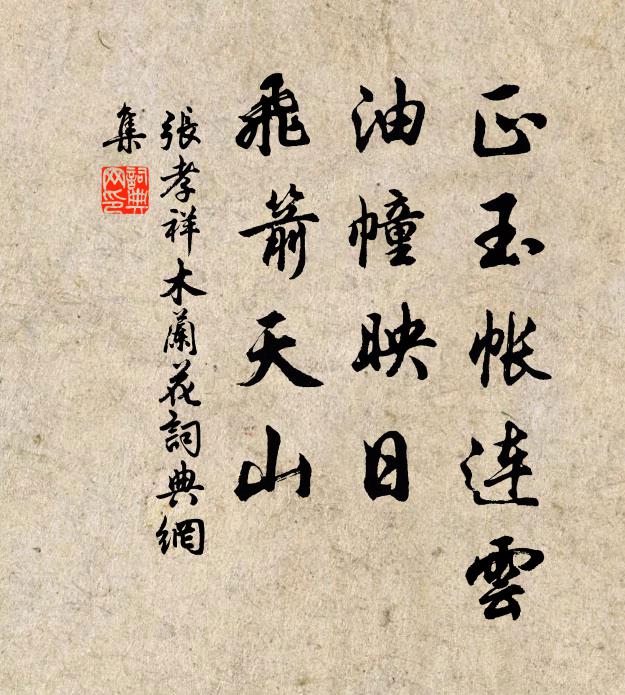 正玉帐连雲
油幢映日
飛箭天山
張孝祥木蘭花詞典網
集
詞典
网印